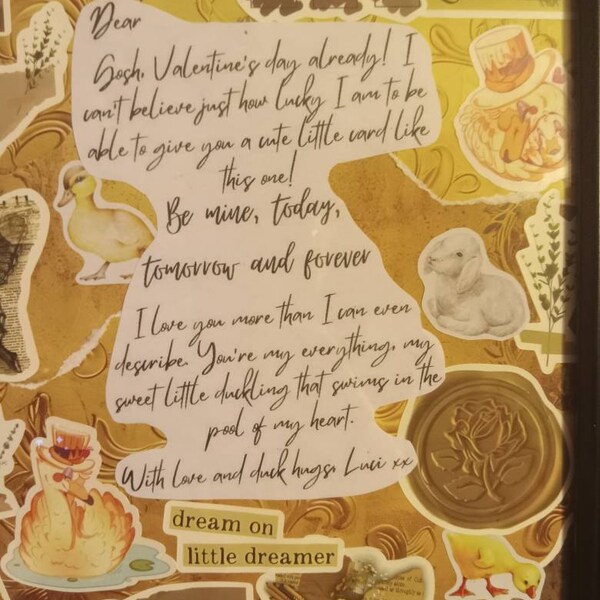 Dear
Gosh, Valentine's day already! I
can't believe just how lucky I am to be
able to give you a cute little card like
this one!
Be mine, today,
tomorrow and forever
I love you more than I can even
describe. You're my everything, my
sweet little duckling that swims in the
pool of my heart.
With love and duck hugs, Luci xx
dream on
little dreamer